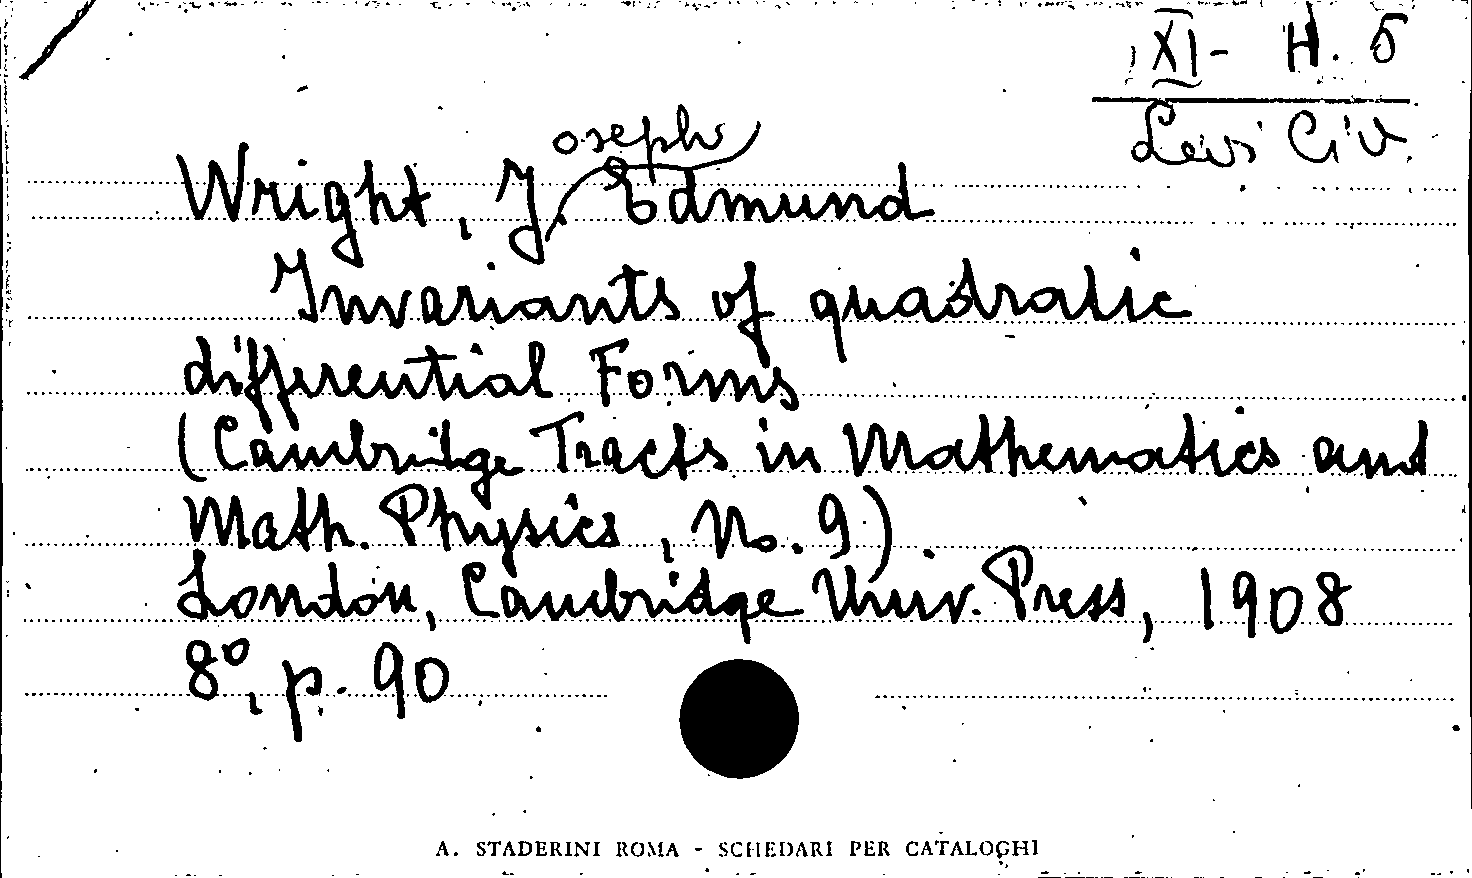 XI - H. 5
Levi Civ.
oseph
Wright, J. Edmund
Invariants of quadratic
differential Forms
(Cambridge Tracts in Mathematics and
Math. Physics, No. 9)
London, Cambridge Univ. Press, 1908
8º, p. 90
A. STADERINI ROMA - SCHEDARI PER CATALOGHI